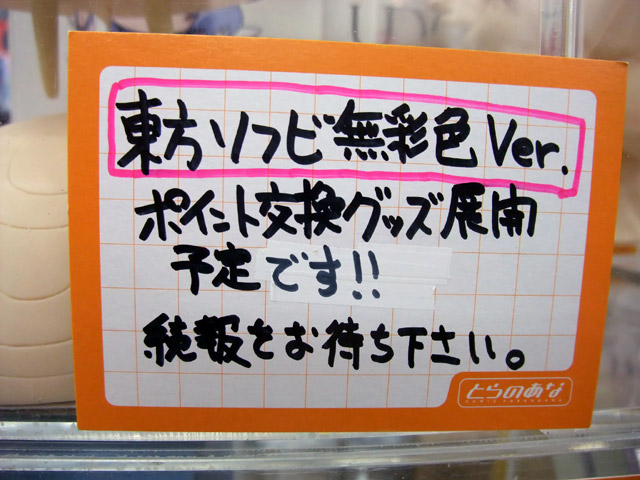 東方ソフビ無彩色Ver.
ポイント交換グッズ展開
予定です!!
続報をお待ち下さい。
とらのあな